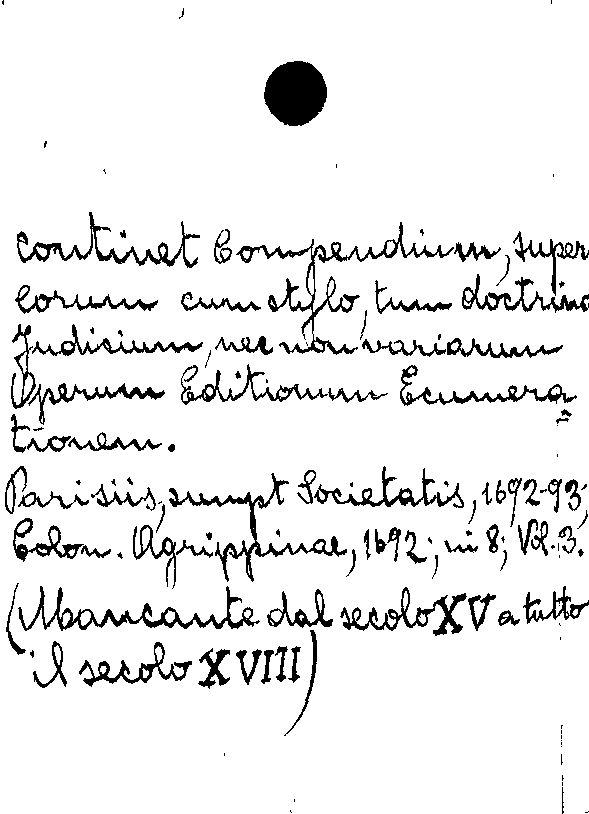 continet Compendium, super
eorum cum stylo, tum doctrina
Judicium, nec non variarum
Operum Editionum Ecumera
tionem.
Parisiis, sumpt Societatis, 1692-93;
Colon. Agrippinae, 1692; in 8; Vol. 3.
(Mancante dal secolo XV a tutto
il secolo XVIII)